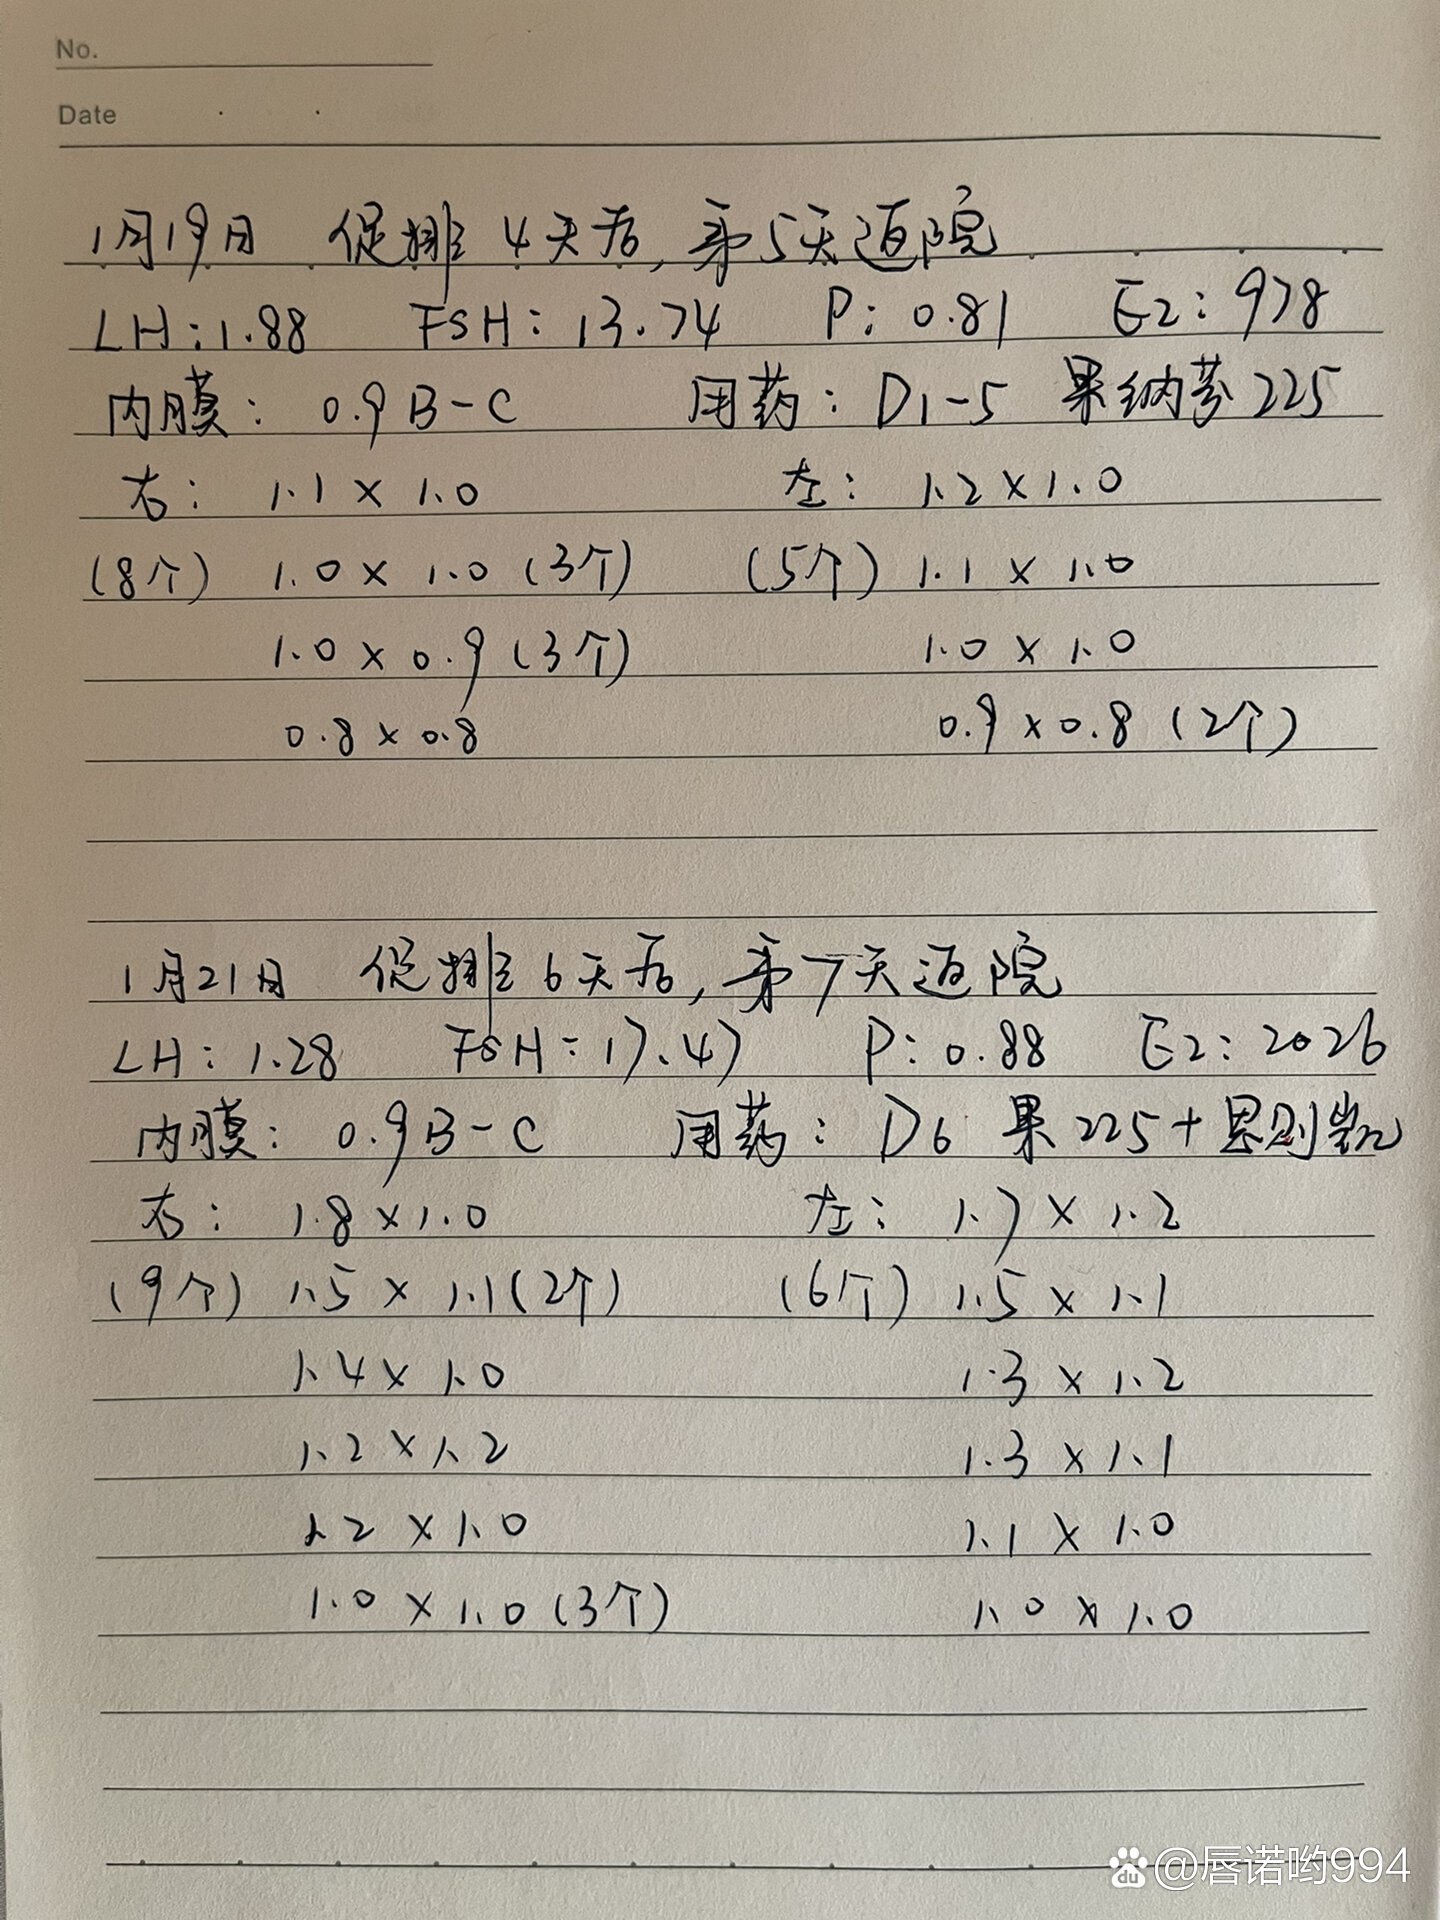 No.
Date
1月19日 促排4天后,第5天返院
LH:1.88 FSH:13.74 P:0.81 E2:978
内膜:0.9B-C 用药:D1-5 果纳芬225
右:1.1×1.0 左:1.2×1.0
(8个) 1.0×1.0(3个) (5个) 1.1×1.0
1.0×0.9(3个) 1.0×1.0
0.8×0.8 0.9×0.8(2个)
1月21日 促排6天后,第7天返院
LH:1.28 FSH:17.47 P:0.88 E2:2026
内膜:0.9B-C 用药:D6 果225+思则凯
右:1.8×1.0 左:1.7×1.2
(9个) 1.5×1.1(2个) (6个) 1.5×1.1
1.4×1.0 1.3×1.2
1.2×1.2 1.3×1.1
1.2×1.0 1.1×1.0
1.0×1.0(3个) 1.0×1.0
du @唇诺哟994